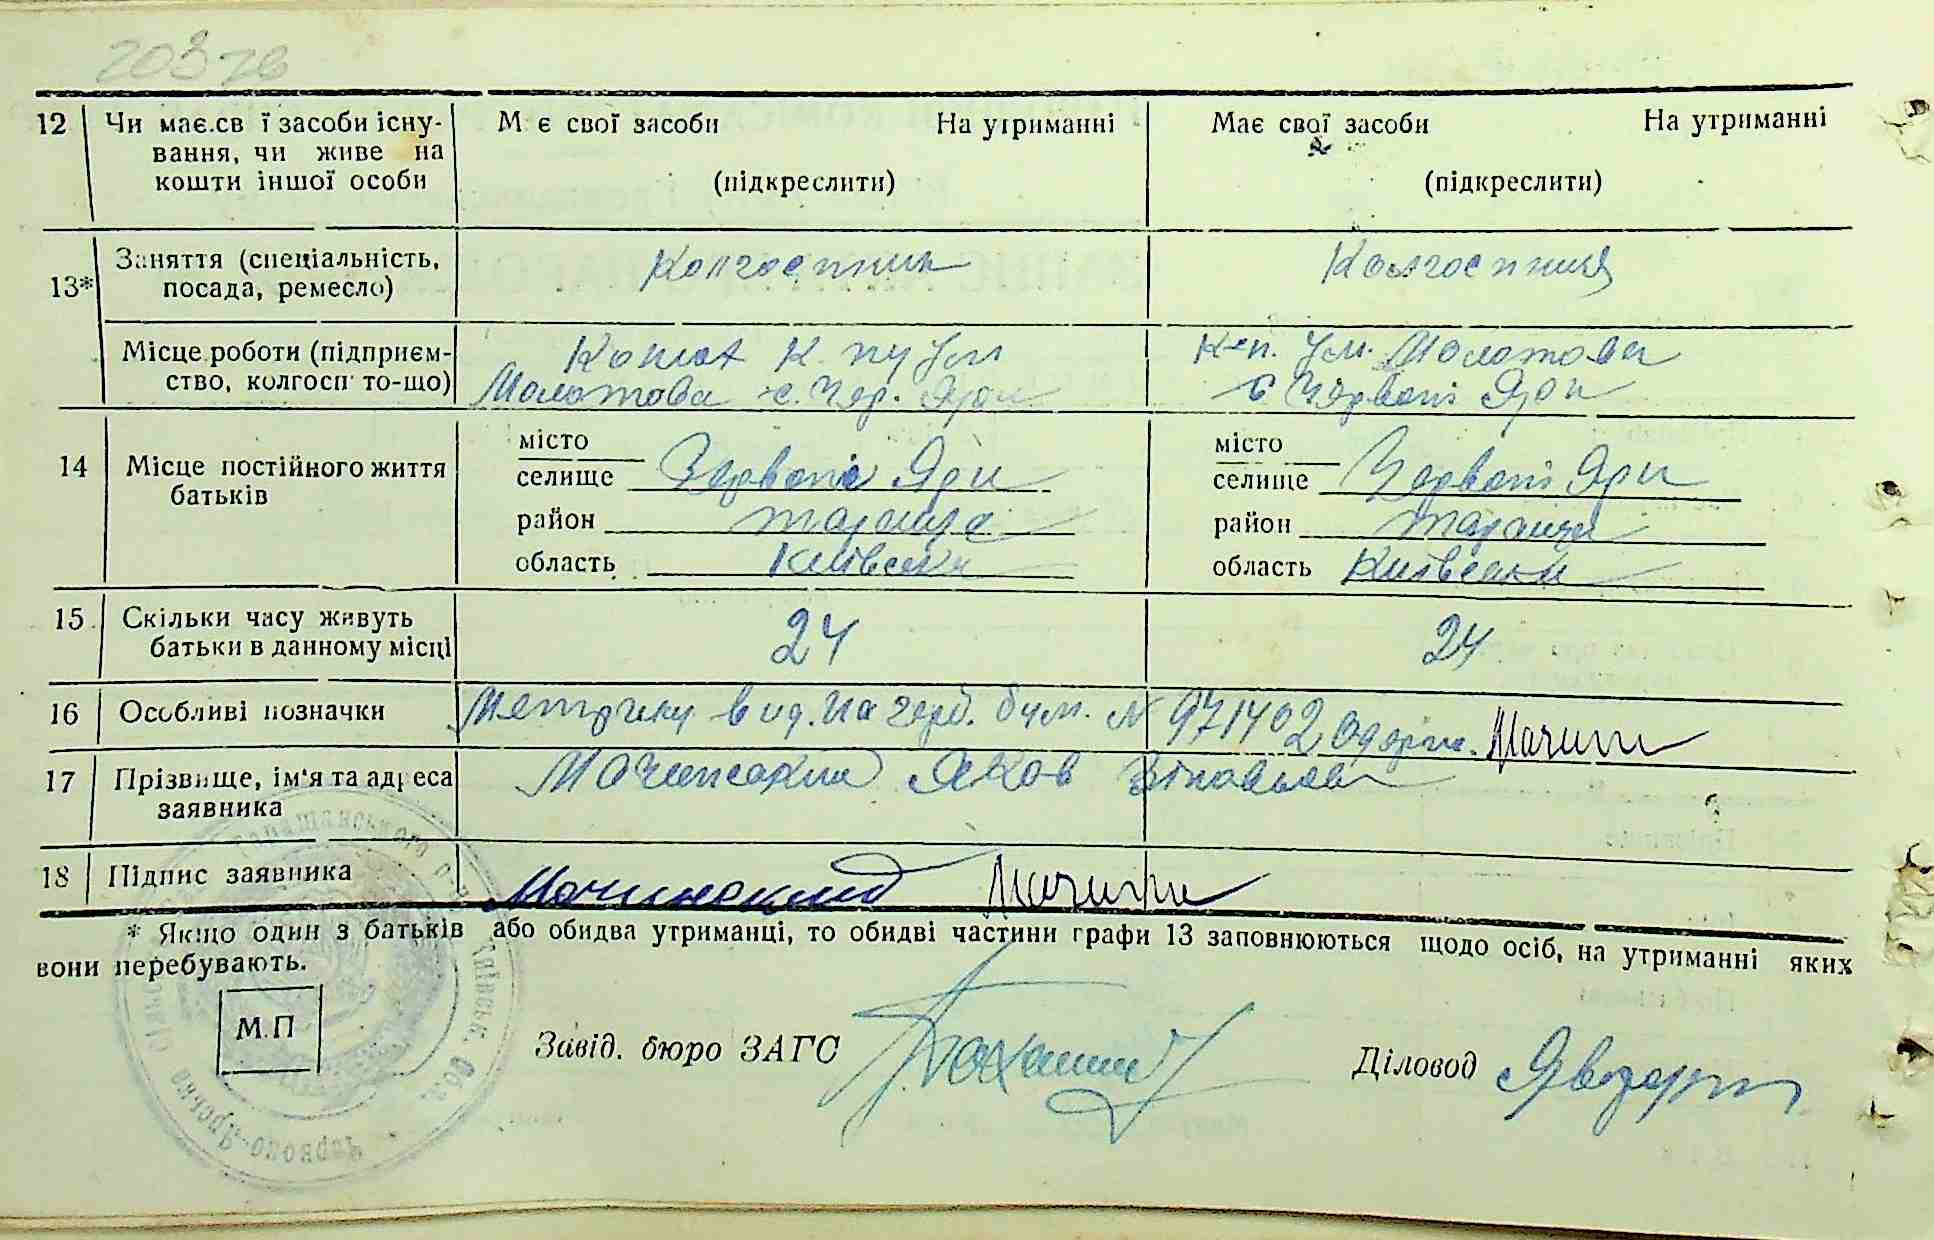 203 зв
12 Чи має.св ї засоби існу- М є свої засоби На утриманні Має свої засоби На утриманні
вання, чи живе на
кошти іншої особи (підкреслити) (підкреслити)
13* Заняття (спеціальність, Колгоспник Колгоспниця
посада, ремесло)
Місце роботи (підприєм- К. Ім. Молотова
ство, колгосп то-що) Молотова с. Чер. Яри с Червоні Яри
14 Місце постійного життя батьків
місто місто
селище Червоні Яри селище Червоні Яри
район Тараща район Тараща
область Київська область Київська
15 Скільки часу живуть 24 24
батьки в данному місці
16 Особливі позначки Метрику вид. на герб. бум. № 971402 Одерж.
17 Прізвище, ім'я та адреса Мочинский Яков
заявника
18 Підпис заявника Мочинский
* Якщо один з батьків або обидва утриманці, то обидві частини графи 13 заповнюються щодо осіб, на утриманні яких
вони перебувають.
М.П
Завід. бюро ЗАГС Діловод
Таращанського р-ну Київськ. Обл.
Червоно-Ярська